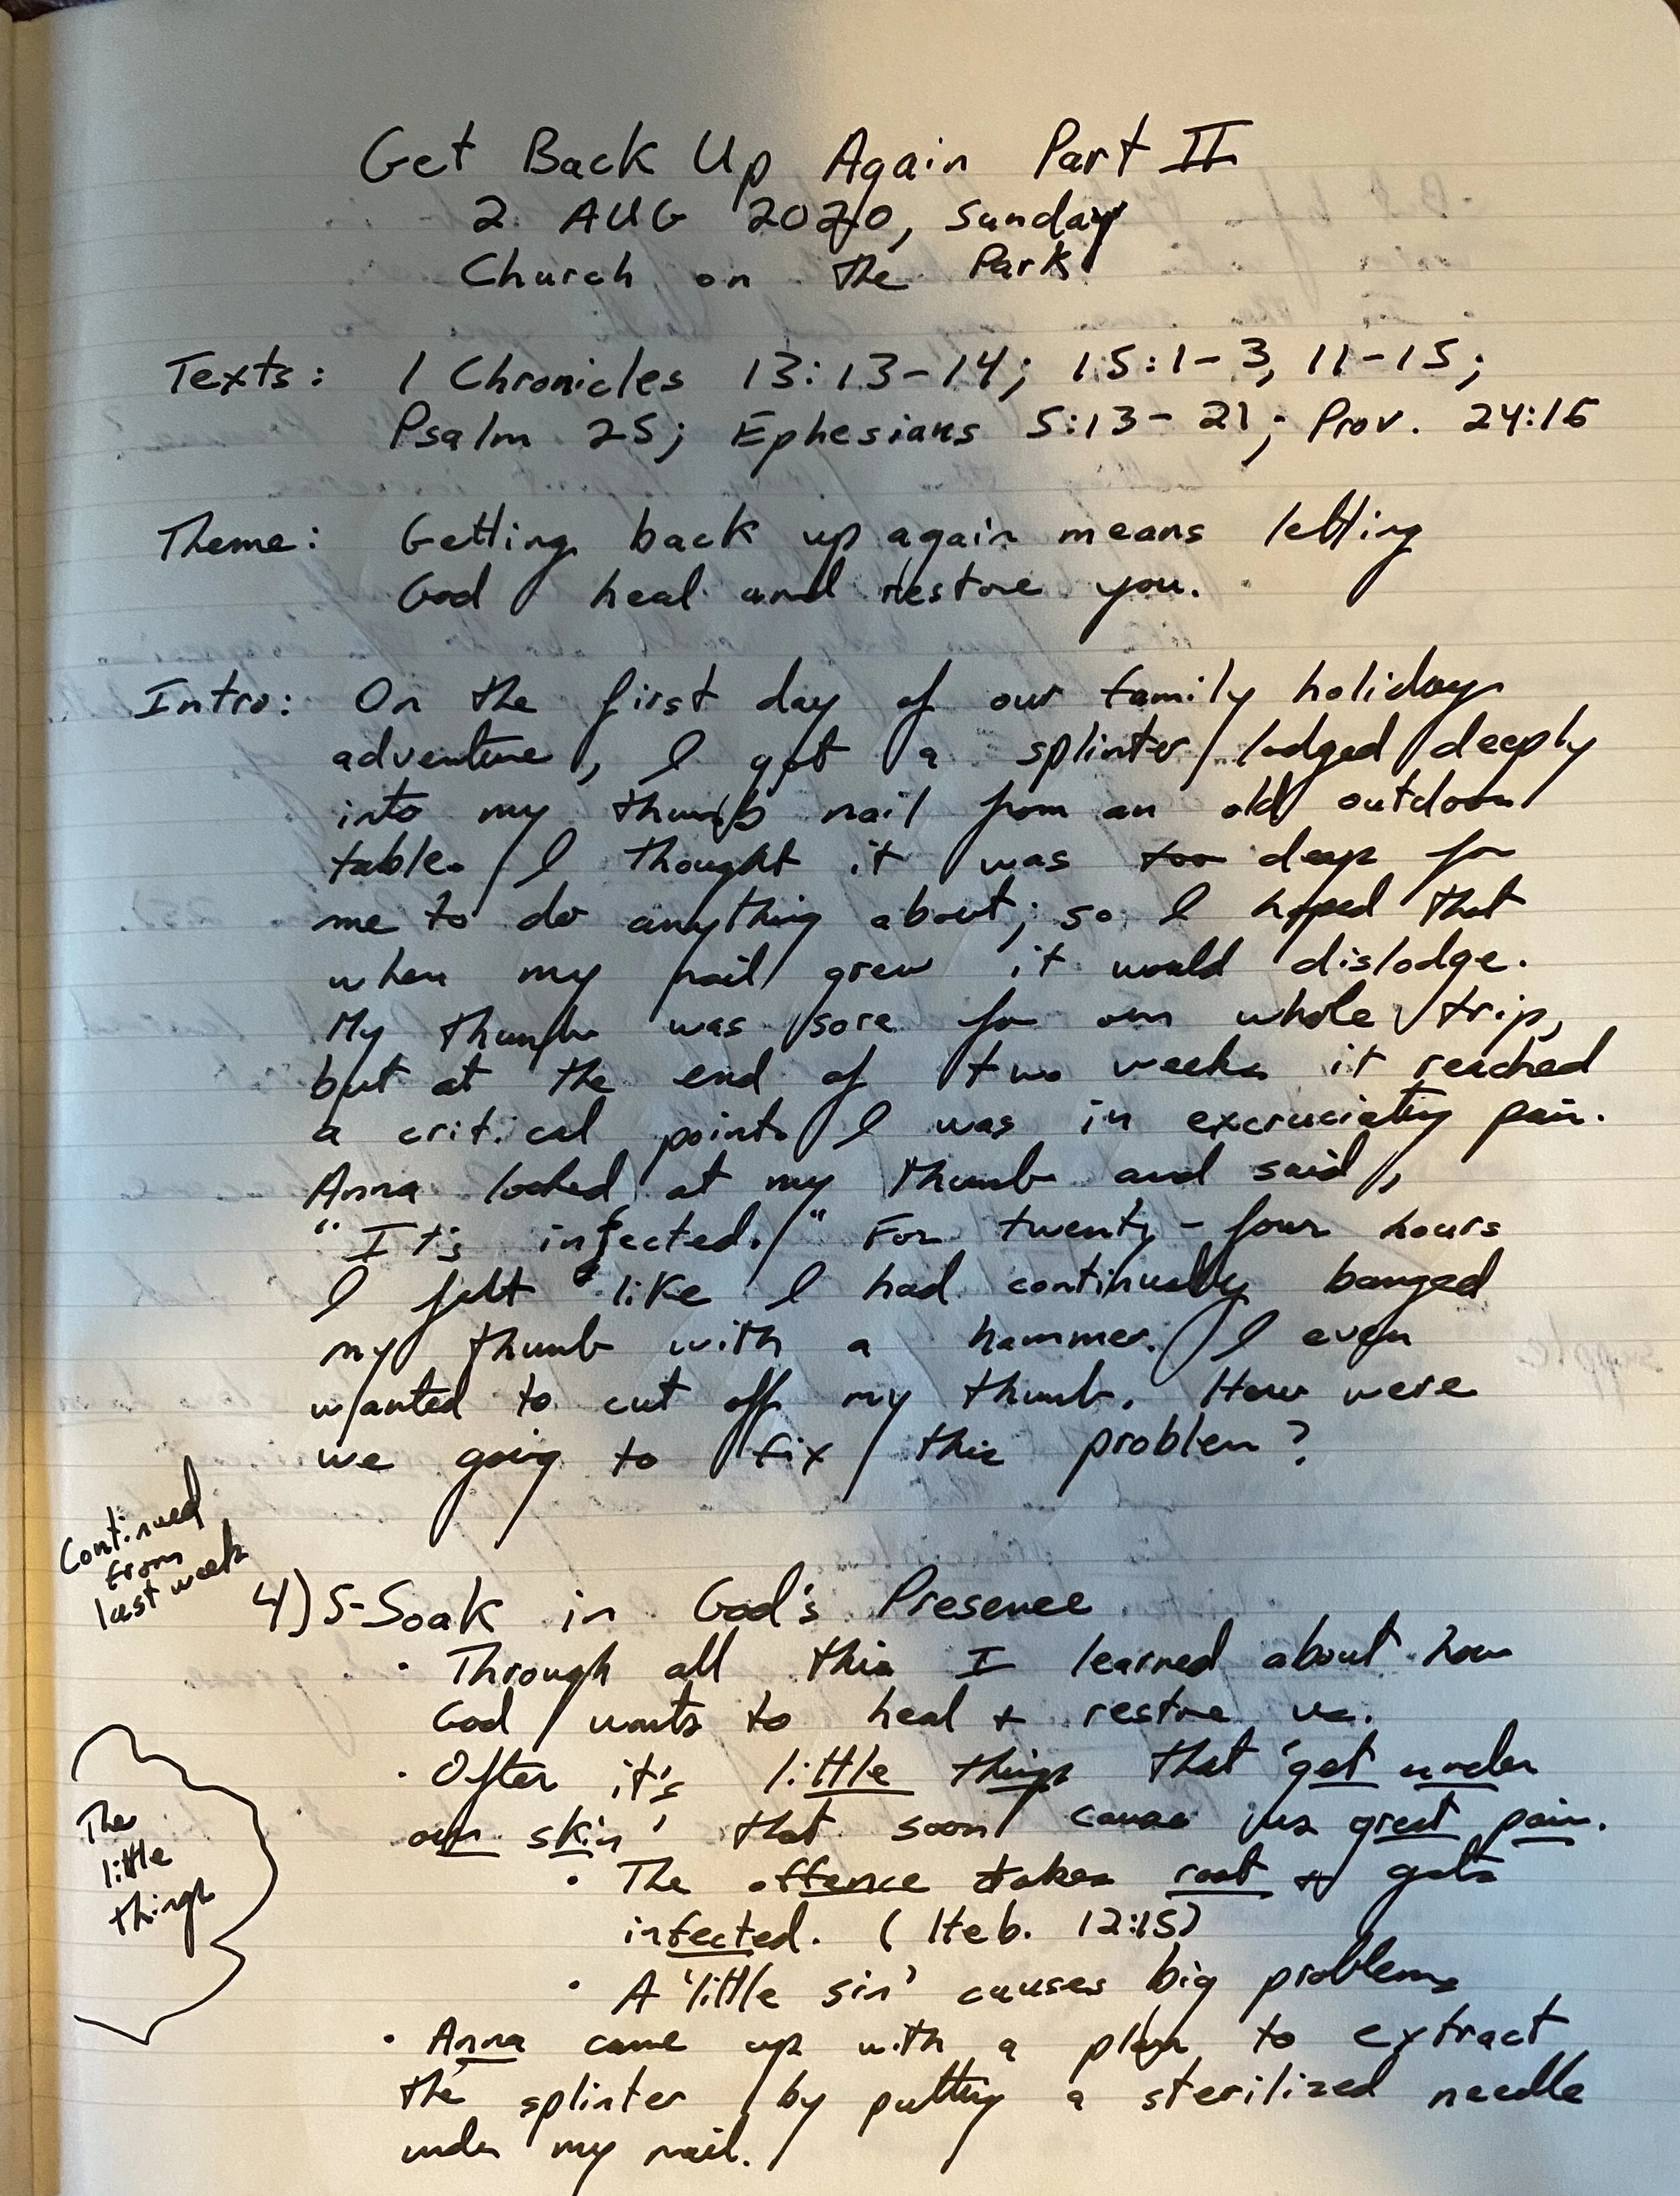 Get Back Up Again Part II
2 AUG 2020, Sunday
Church on the Park
Texts: 1 Chronicles 13:13-14; 15:1-3, 11-15;
Psalm 25; Ephesians 5:13-21; Prov. 24:16
Theme: Getting back up again means letting
God heal and restore you.
Intro: On the first day of our family holiday
adventure, I got a splinter lodged deeply
into my thumb nail from an old outdoor
table. I thought it was too deep for
me to do anything about; so I hoped that
when my nail grew it would dislodge.
My thumb was sore for our whole trip,
but at the end of two weeks it reached
a critical point. I was in excruciating pain.
Anna looked at my thumb and said,
"It's infected." For twenty-four hours
I felt like I had continually banged
my thumb with a hammer. I even
wanted to cut off my thumb. How were
we going to fix this problem?
Continued
from
last week
4) S-Soak in God's Presence
· Through all this I learned about how
God wants to heal + restore us.
· Often it's little things that 'get under
our skin' that soon cause us great pain.
· The offence takes root + gets
infected. (Heb. 12:15)
· A 'little sin' causes big problems
The
little
things
· Anna came up with a plan to extract
the splinter by putting a sterilized needle
under my nail.